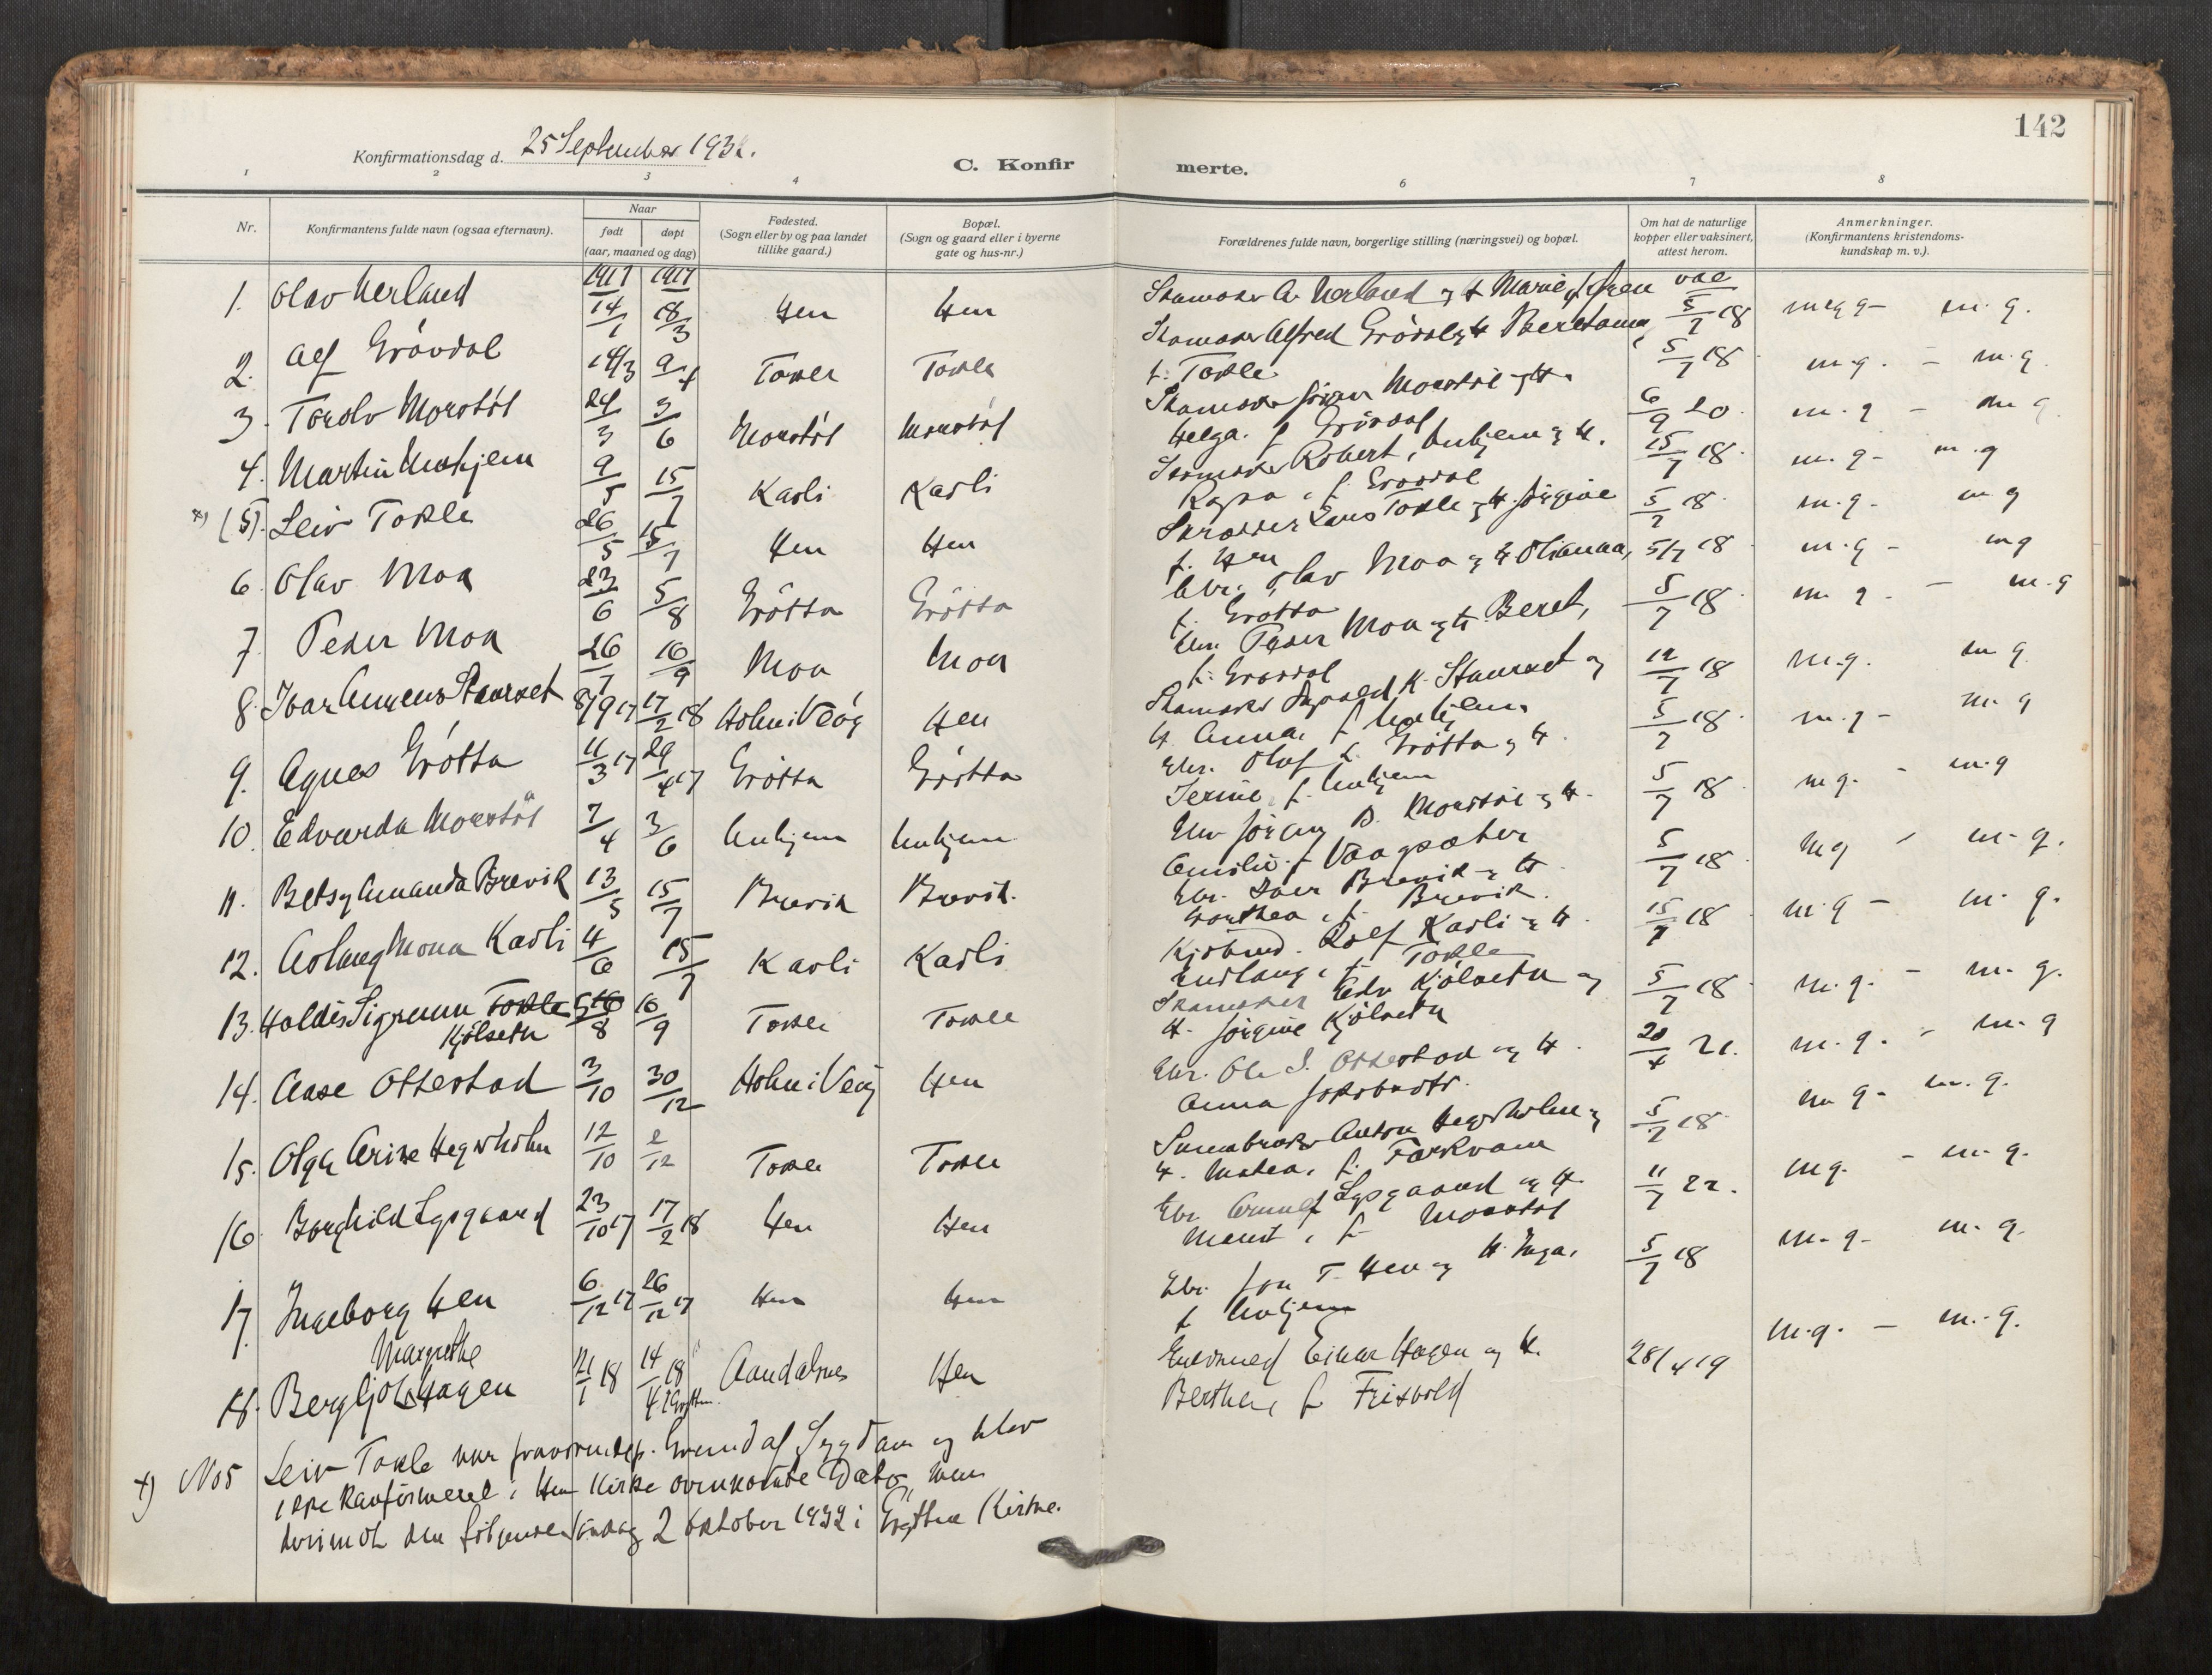 142
Konfirmationsdag d. 25 September 1932.
C. Konfirmerte.
1 2 3 4 6 7 8
Nr.
Konfirmantens fulde navn (ogsaa efternavn).
Naar
født
døpt
(aar, maaned og dag)
Fødested.
(Sogn eller by og paa landet
tillike gaard.)
Bopæl.
(Sogn og gaard eller i byerne
gate og hus-nr.)
Forældrenes fulde navn, borgerlige stilling (næringsvei) og bopæl.
Om hat de naturlige
kopper eller vaksinert,
attest herom.
Anmerkninger.
(Konfirmantens kristendoms-
kundskap m. v.).
1917 1917 vac
1. Olav Nerland 14/1 18/3 Hen Hen Skomaker A. Nerland og H Marie f Gren 5/7 18 meg g - m. g.
2. Alf Grövdal 14/3 9/4 Tokle Tokle Skomaker Alfred Grövdal og H Beretanna,
f. Tokle 5/7 18 m.g. - m.g.
3. Torolv Morstöl 24/3 3/6 Morstöl Morstöl Skomaker Jörgen Morstöl og H.
Helga. f Grövdal 6/9 20. m. g - m g
4. Martin Unhjem 9/5 15/7 Kavli Kavli Skomaker Robert Unhjem og H.
f. Grovdal 15/7 18. m. g - m. g
x) (5). Leiv Tokle 26/5 15/7 Hen Hen Skrædder Lars Tokle og H. Jörgine
f. Hen 5/7 18 m. g. m g
6. Olav Moa 23/6 5/8 Grötta Grötta Olav Moa og H Olianna,
f. Grötta 5/7 18 m. g - m g
7. Peder Moa 26/7 16/9 Moa Moa Peder Moa og H Beret,
f. Grovdal 5/7 18. m g. - m. g
8. Ivar Stavrset 8/9 17 17/2 18 Holm i Veöy Hen Skomaker K. Stavrset og
H. Anna, f Unhjem 12/7 18 m.g. m g
9. Agnes Grötta 11/3 17 29/4 17 Grötta Grötta Gbr. Olaf L. Grötta og H.
f. Unhjem 5/7 18. m. g - m. g
10. Edvarda Morstöl 7/4 3/6 Unhjem Unhjem Jörgen B. Morstöl og H.
f Vaagsæter 5/7 18 m g. - m. g
11. Betsy Amanda Brevik 13/5 15/7 Brevik Brevik. Gbr. Iver Brevik og H
Dorthea, f. Brevik. 5/7 18 m g - m. g.
12. Aslaug Mona Kavli 4/6 15/7 Kavli Kavli Kjöbmd. Rolf Kavli og H.
f Tokle 15/7 18 m. g - m. g.
13. Haldis Sigrunn Tokle
Kjölseth 8 16/9 Tokle Tokle Skomaker Edv Kjölseth og
H. Jörgine Kjölseth 5/7 18 m. g. - m. g.
14. Aase Otterstad 3/10 30/12 Holm i Veöy Hen Gbr. Ole S. Otterstad og H.
Anna Jakobsdtr. 20/4 21. m. g. - m. g
15. Olga Hegerholm 12/10 2/12 Tokle Tokle Anton Hegerholm og
H. Mathea, f. Farkvam 5/7 18 m g - m. g.
16. Borghild Lysgaard 23/10 17 17/2 18 Hen Hen Gbr Lysgaard og H.
Marit, f. Morstöl 11/7 22. m g. - m. g.
17. Ingeborg Hen 6/12 17 26/12 17 Hen Hen Gbr. Jon T. Hen og H. Inga,
f Unhjem 5/7 18 m. g. m. g.
Margrethe
18. Bergljot Hagen 21/1 18 14/4 18 i Grytten. Aandalsnes Hen Einar Hagen og H.
Berthea, f. Frisvold 28/4 19 m. g. - m. g.
x) No 5 Leiv Tokle var fraværende p. Grund af Sygdom og blev
ikke konfirmeret i Hen Kirke ovennævnte Dato, men
derimot den følgende Söndag 2 Oktober 1932 i Grytten Kirke.